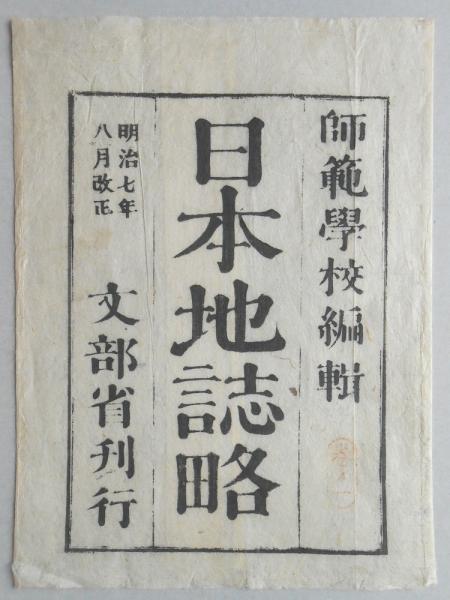 師範學校編輯
日本地誌略
明治七年
八月改正
文部省刊行
卷之一